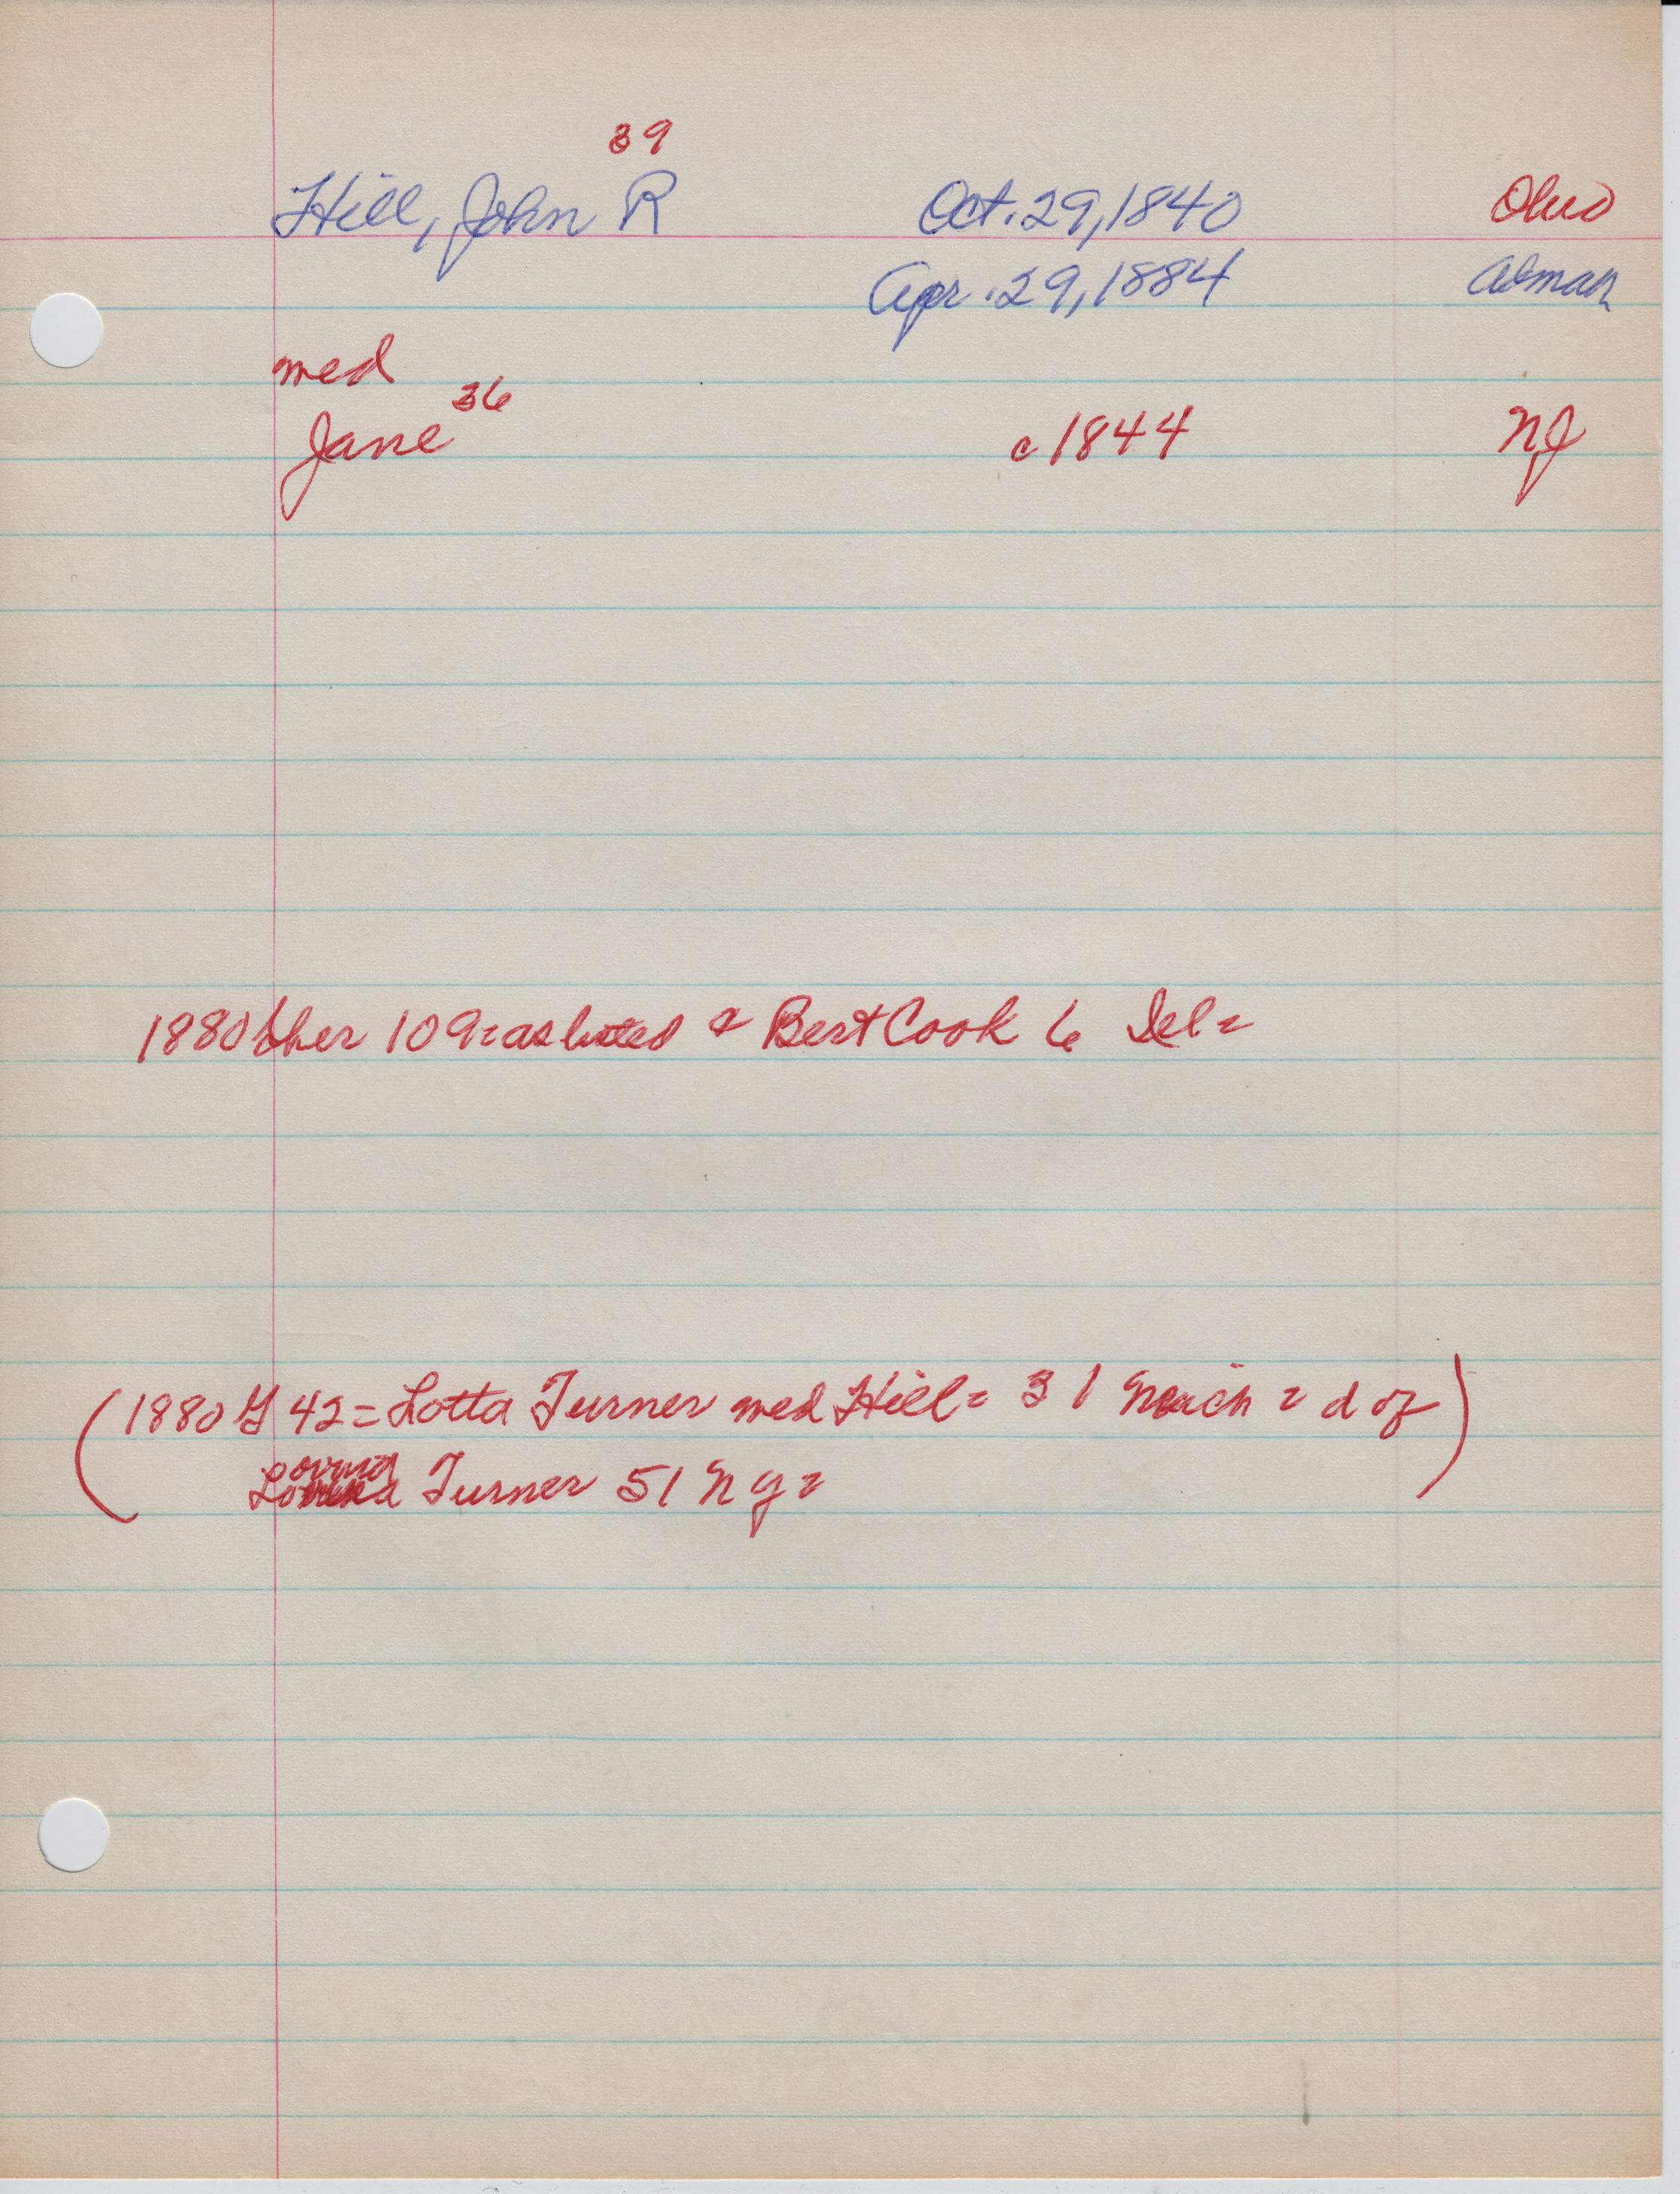 39
Hill, John R Oct. 29, 1840 Ohio
Apr. 29, 1884
med
Jane 36 c 1844 NJ
1880 109 = as listed & Bert Cook 6 Del =
(1880 42 = Lotta Turner med Hill = 31 Mich = d of
Turner 51 NY =)